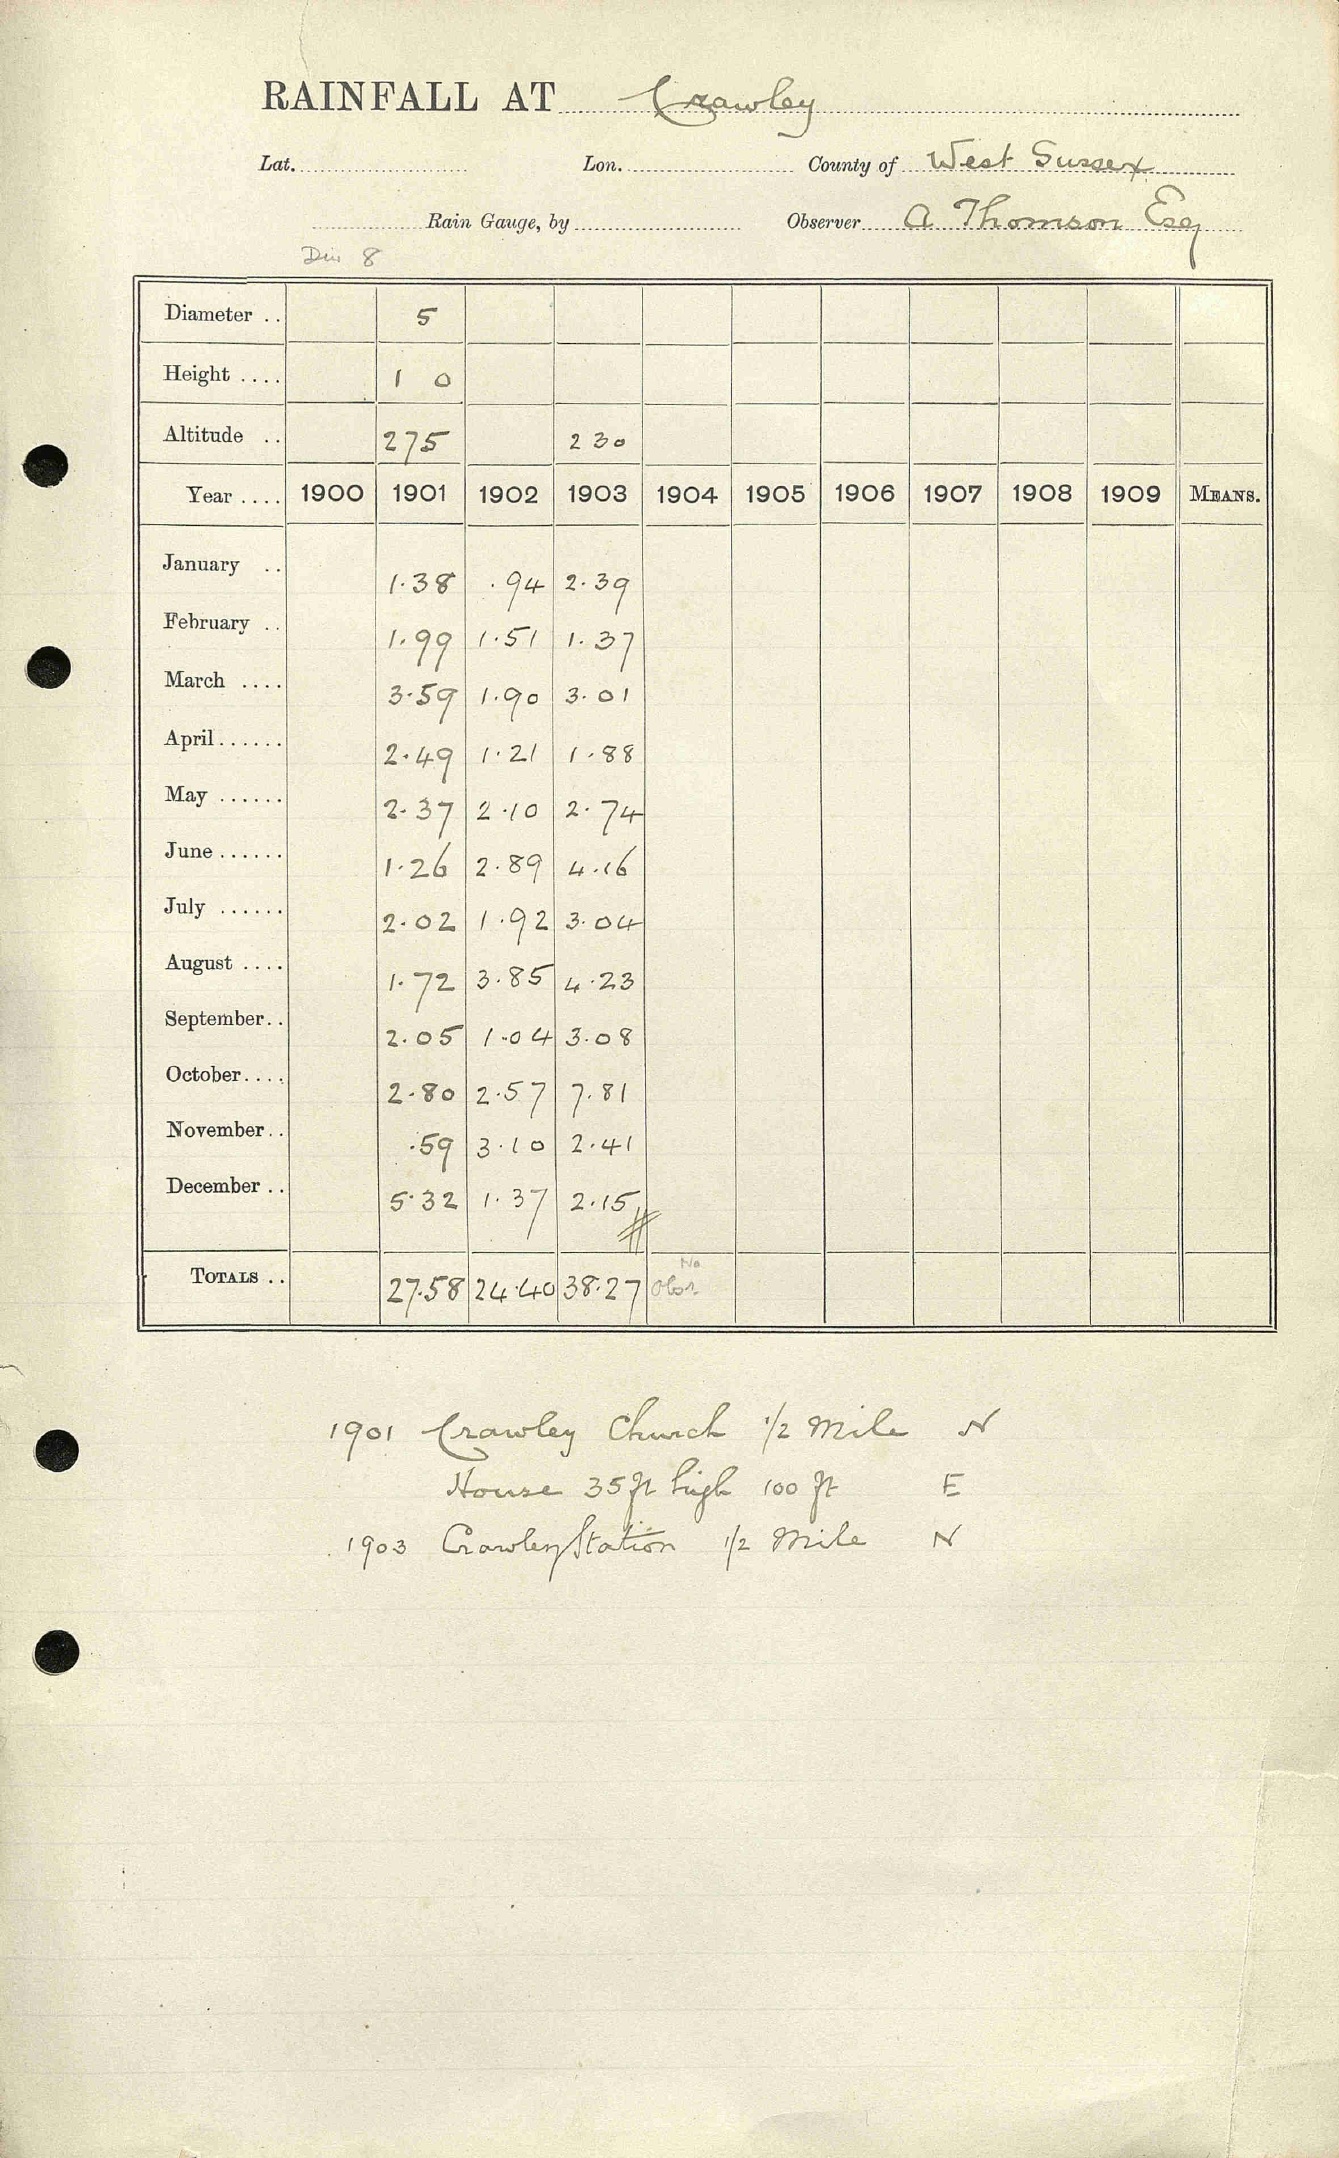 RAINFALL AT Crawley
Lat. Lon. County of West Sussex
Rain Gauge, by Observer A Thomson Esq
Div 8
Diameter .. 5
Height .... 1 0
Altitude .. 275 230
Year .... 1900 1901 1902 1903 1904 1905 1906 1907 1908 1909 MEANS.
January .. 1.38 .94 2.39
February .. 1.99 1.51 1.37
March .... 3.59 1.90 3.01
April ...... 2.49 1.21 1.88
May ...... 2.37 2.10 2.74
June ...... 1.26 2.89 4.16
July ...... 2.02 1.92 3.04
August .... 1.72 3.85 4.23
September .. 2.05 1.04 3.08
October .... 2.80 2.57 7.81
November .. .59 3.10 2.41
December .. 5.32 1.37 2.15
TOTALS .. 27.58 24.40 38.27 No Obsr.
1901 Crawley Church 1/2 Mile N
House 35 ft high 100 ft E
1903 Crawley Station 1/2 Mile N